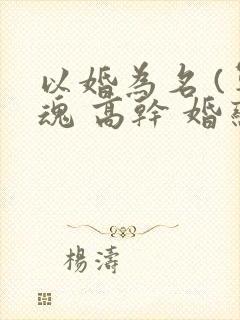 以婚為名(
魂 高幹 婚
楊濤